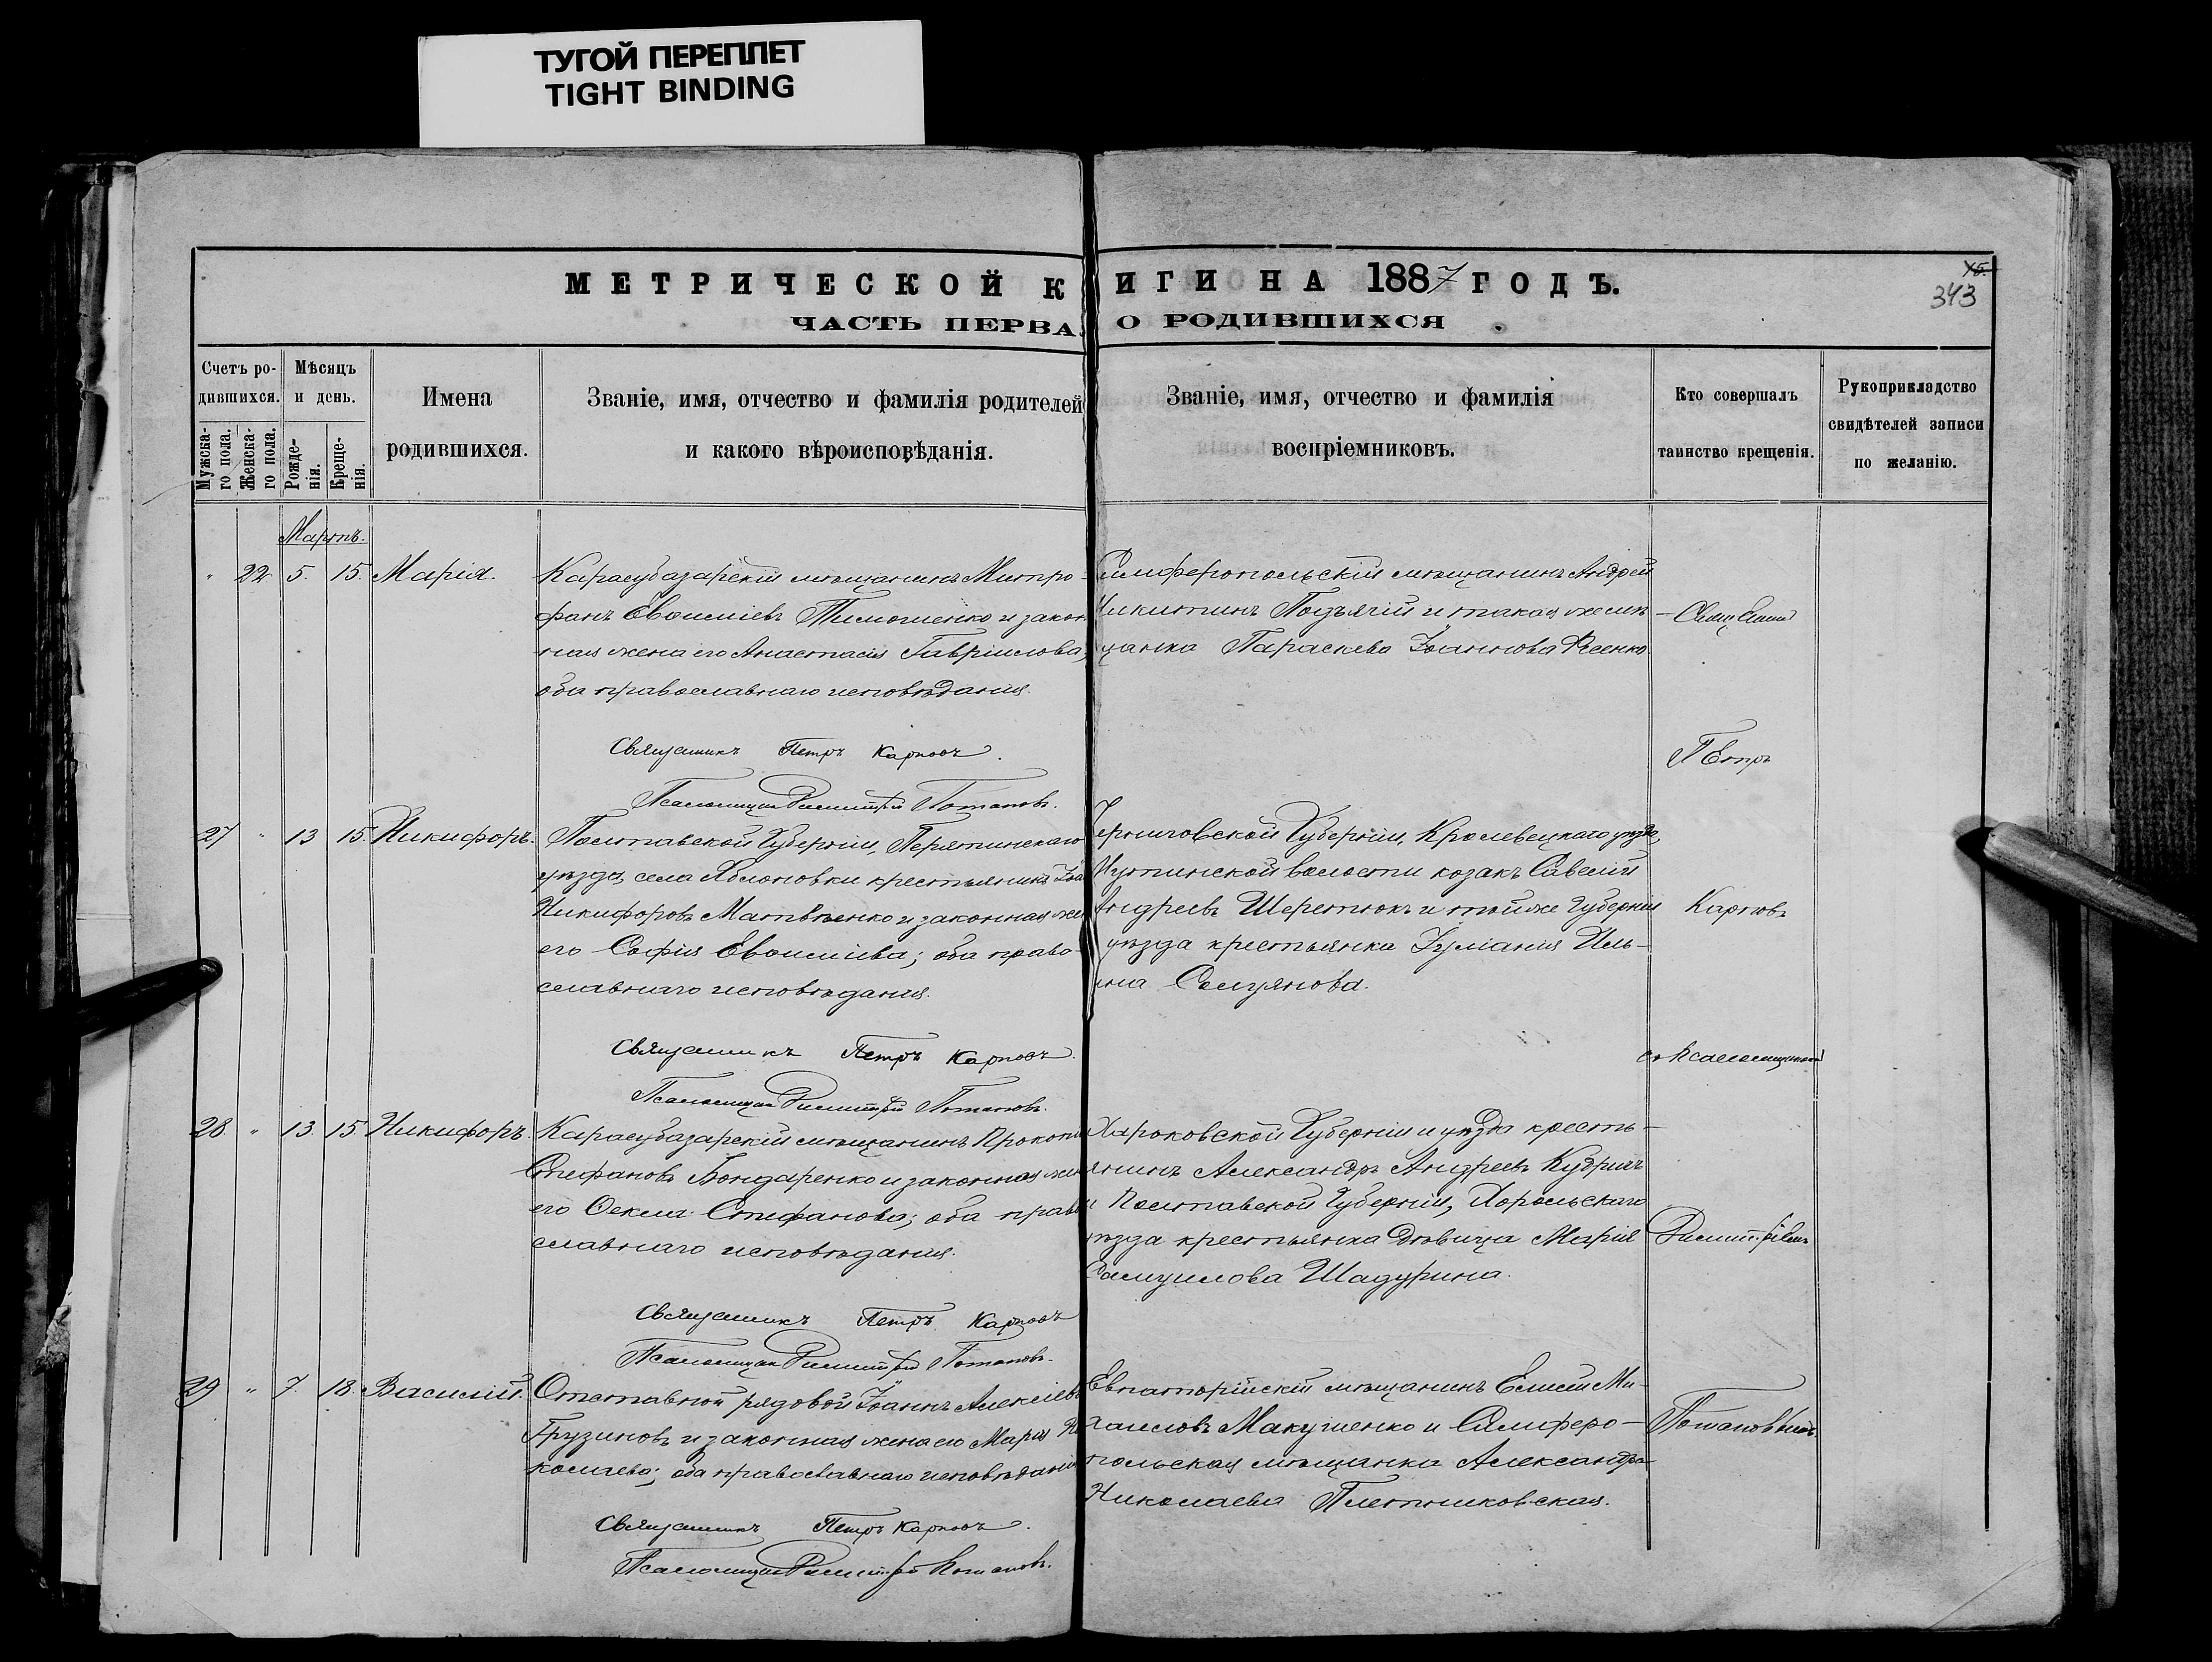 ТУГОЙ ПЕРЕПЛЕТ
TIGHT BINDING
МЕТРИЧЕСКОЙ К ИГИ НА 1887 ГОДЪ.
15.
343
ЧАСТЬ ПЕРВА О РОДИВШИХСЯ
Счетъ родившихся.
Мужска-
го пола.
Женска-
го пола.
Мѣсяцъ
и день.
Рожде-
нія.
Креще-
нія.
Имена
родившихся.
Званіе, имя, отчество и фамилія родителей
и какого вѣроисповѣданія.
Званіе, имя, отчество и фамилія
воспріемниковъ.
Кто совершалъ
таинство крещенія.
Рукоприкладство
свидѣтелей записи
по желанію.
Мартъ.
" 22 5. 15. Марія.
Карасубазарскій мѣщанинъ Митро-
фанъ Евѳиміевъ Тимошенко и закон
ная жена его Анастасія Гавріилова,
оба православнаго исповѣданія.
Священникъ Петръ Карповъ.
Псаломщикъ Димитрій Потаповъ.
Симферопольскій мѣщанинъ Андрей
Никитинъ Подъячій и такая же мѣ
щанка Параскева Іоаннова
27 " 13 15 Никифоръ.
Полтавской Губерніи, Пирятинскаго
уѣзда, села Яблоновки крестьянинъ Іоа
Никифоровъ Матвѣенко и законная же
его Софія Евѳиміева; оба право-
славнаго исповѣданія.
Священникъ Петръ Карповъ.
Псаломщикъ Димитрій Потаповъ.
Черниговской Губерніи, Кролевецкаго уѣзда,
волости козакъ Савелій
Андреевъ Шеретюкъ и той же Губерніи
уѣзда крестьянка Іуліанія Иль-
ина
28. " 13. 15 Никифоръ.
Карасубазарскій мѣщанинъ Прокопі
Стефановъ Бондаренко и законная же
его Ѳекла Стефанова; оба право
славнаго исповѣданія.
Священникъ Петръ Карповъ
Псаломщикъ Димитрій Потаповъ.
Харьковской Губерніи и уѣзда кресть-
янинъ Александръ Андреевъ
и Полтавской Губерніи, Хорольскаго
уѣзда крестьянка дѣвица Марія
Самуилова Шадурина.
29 " 7. 18. Василій.
Отставной рядовой Іоаннъ Алексіевъ
Грузиновъ и законная жена его Марія Ни
колаева; оба православнаго исповѣданія
Священникъ Петръ Карповъ.
Псаломщикъ Димитрій Потаповъ.
Евпаторійскій мѣщанинъ Ми-
хаиловъ Макушенко и Симферо-
польская мѣщанка Александра
Николаева Плетниковская.
Петръ
Карповъ
съ Псаломщикомъ
Димитріемъ
Потаповымъ